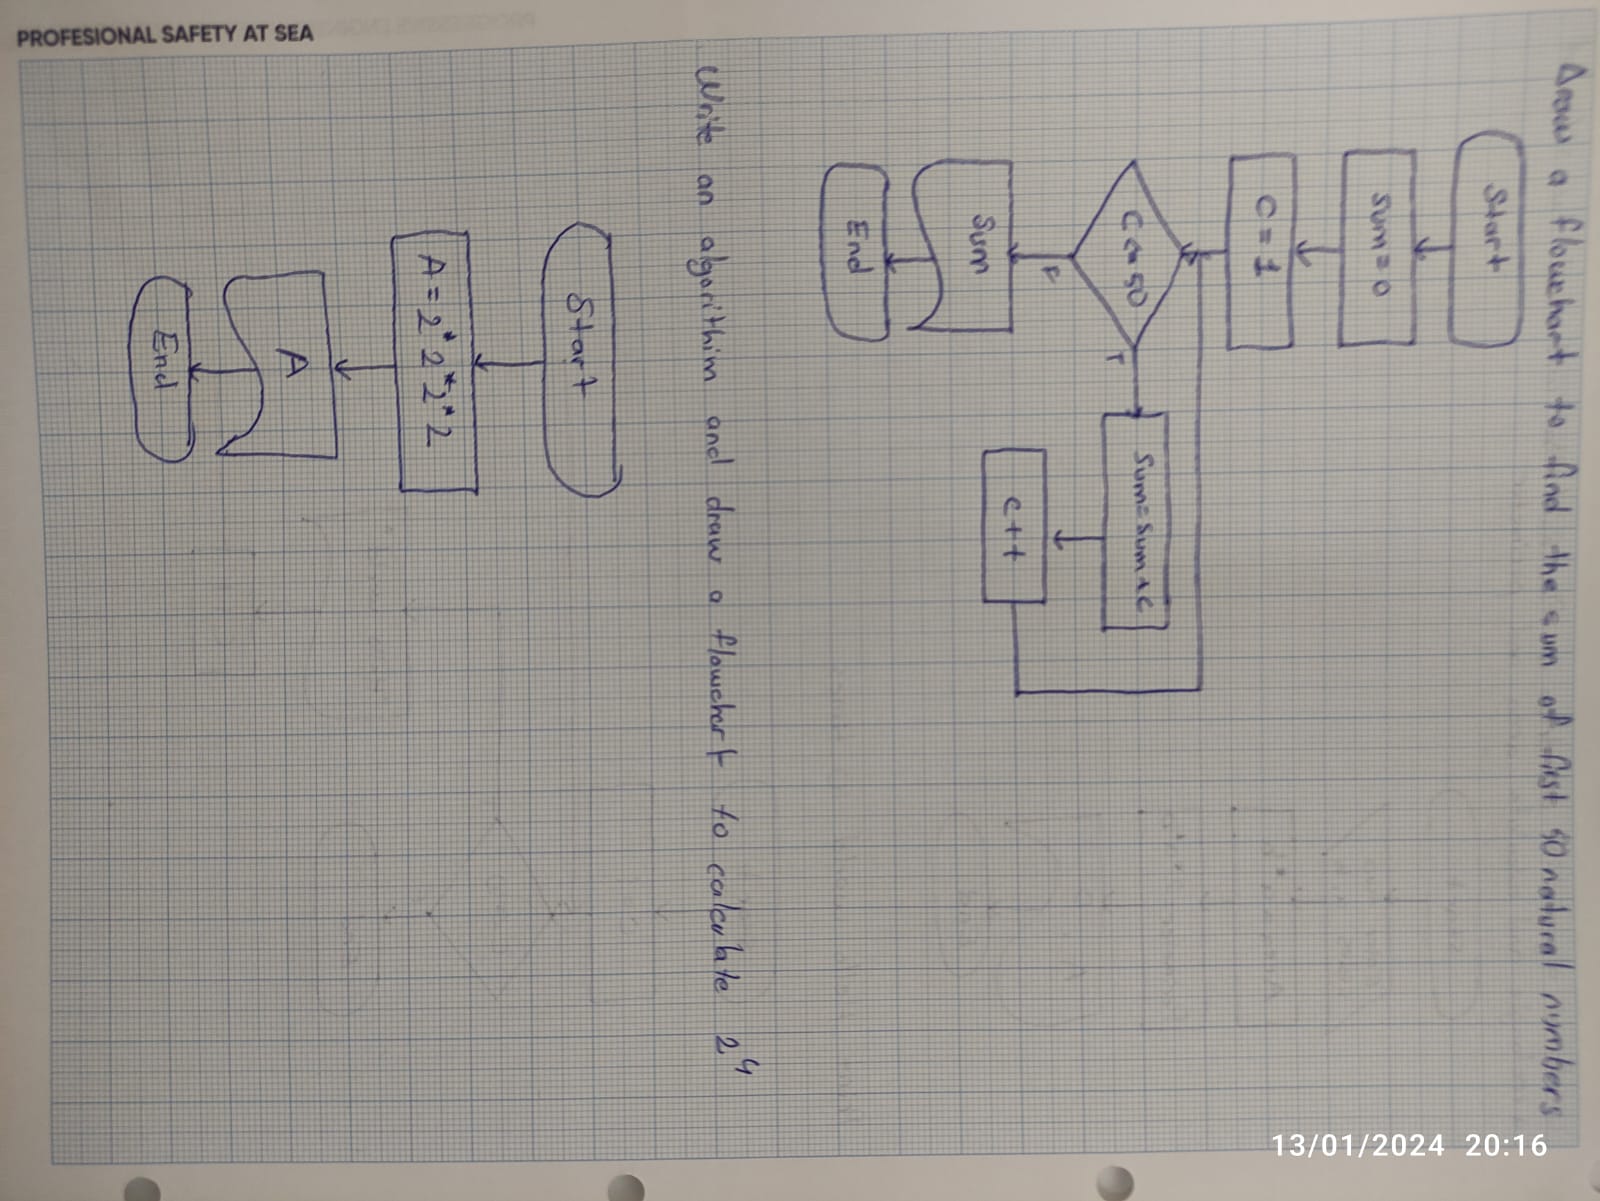 PROFESIONAL SAFETY AT SEA
Draw a flowchart to find the sum of first 50 natural nymbers
Start
Sum = 0
C = 1
T
Sum=Sum+C
C++
F
Sum
End
Write an algorithim and draw a flowchart to calculate 2⁴
Start
A = 2*2*2*2
A
End
13/01/2024 20:16